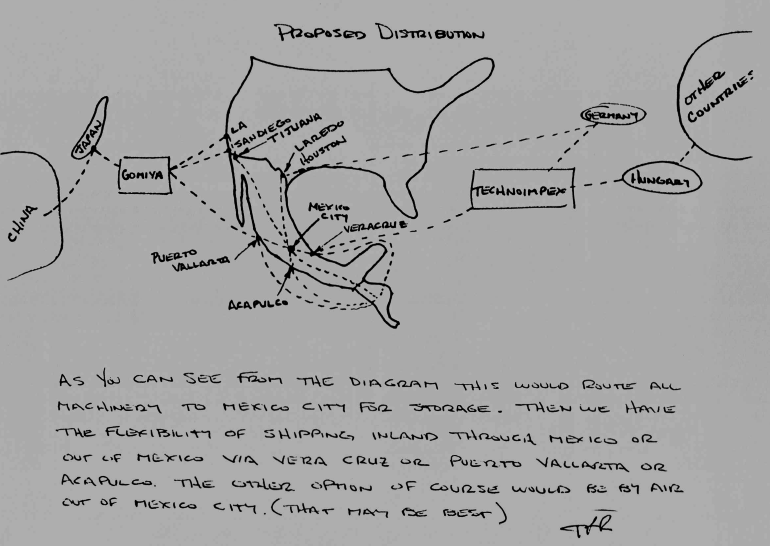 PROPOSED DISTRIBUTION
LA
SANDIEGO
TIJUANA
LAREDO
HOUSTON
JAPAN
GOMIYA
CHINA
GERMANY
OTHER
COUNTRIES
TECHNOIMPEX
HUNGARY
MEXICO
CITY
VERACRUZ
PUERTO
VALLARTA
ACAPULCO
AS YOU CAN SEE FROM THE DIAGRAM THIS WOULD ROUTE ALL
MACHINERY TO MEXICO CITY FOR STORAGE. THEN WE HAVE
THE FLEXIBILITY OF SHIPPING INLAND THROUGH MEXICO OR
OUT OF MEXICO VIA VERA CRUZ OR PUERTO VALLARTA OR
ACAPULCO. THE OTHER OPTION OF COURSE WOULD BE BY AIR
OUT OF MEXICO CITY. (THAT MAY BE BEST)